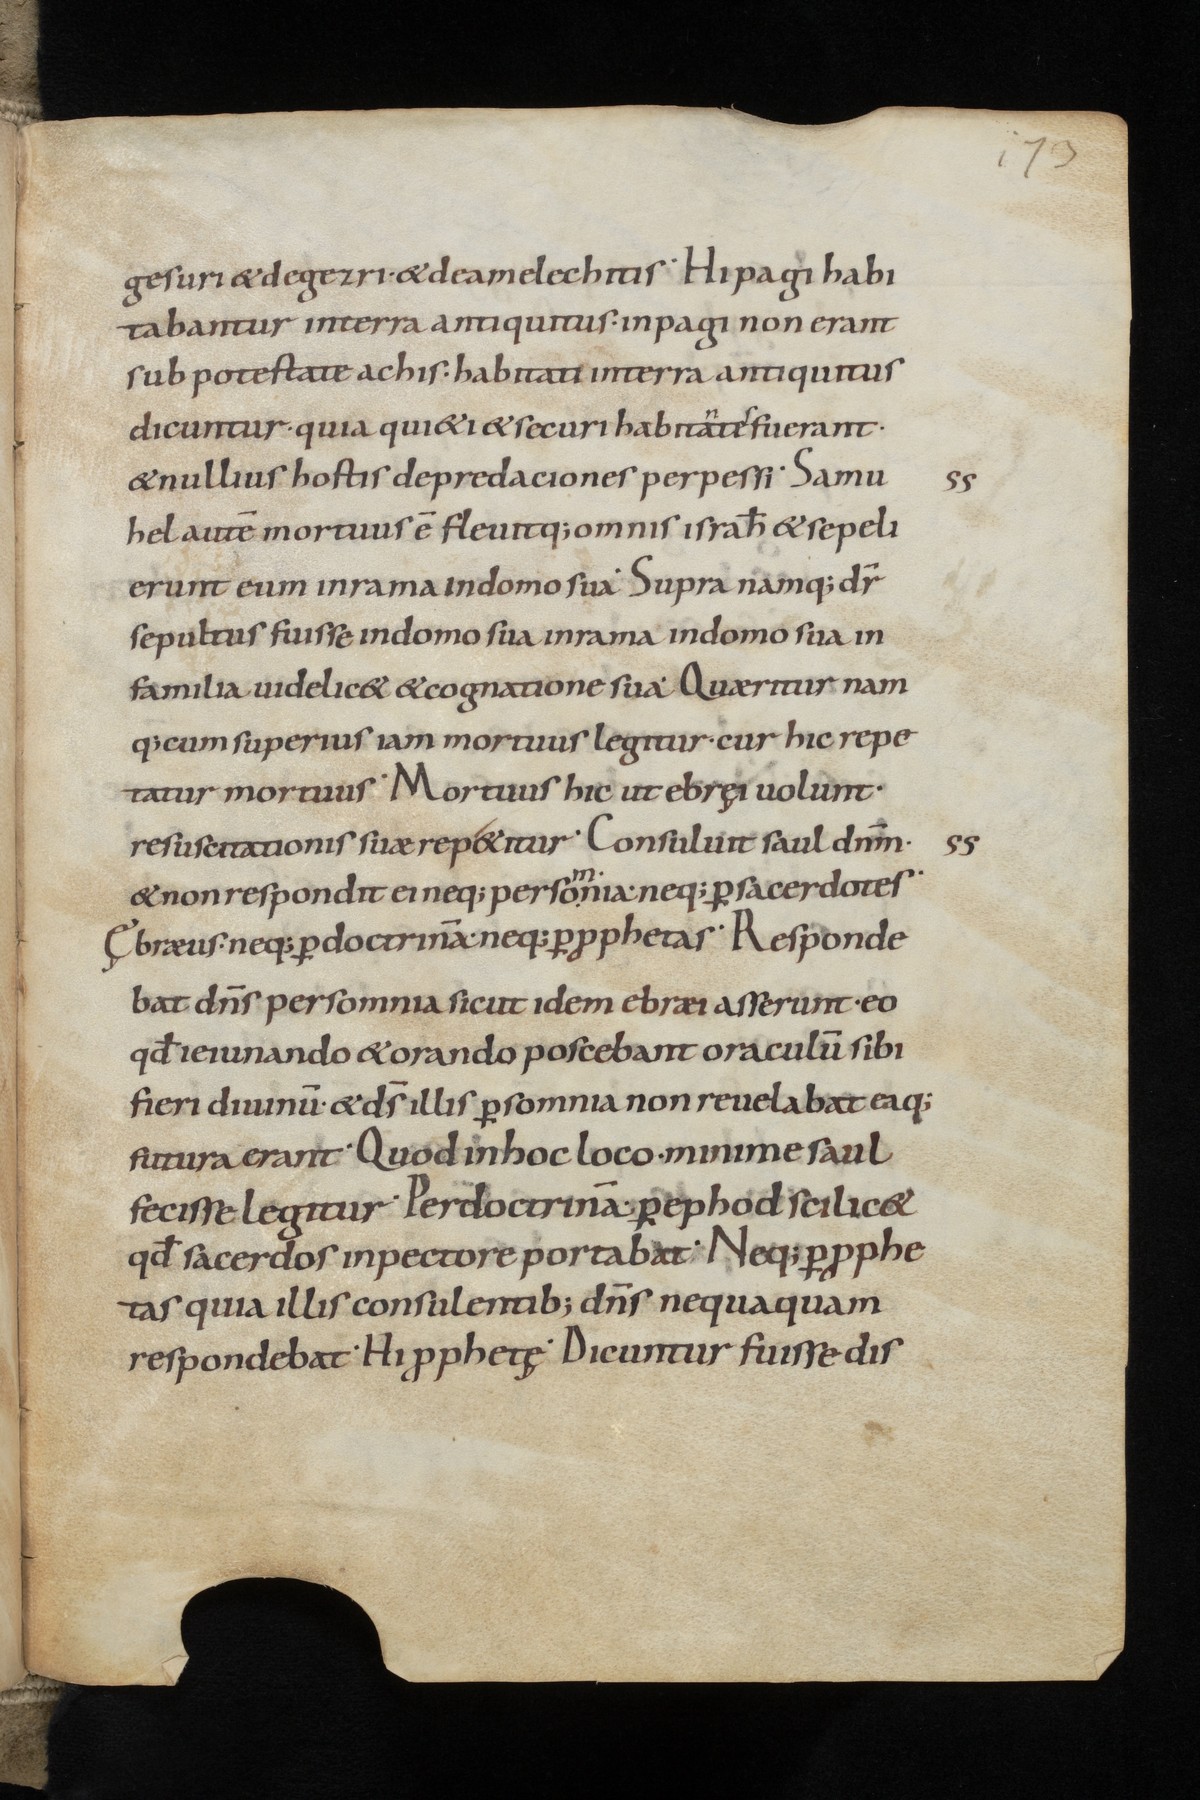 173
gesuri & degezri· & de amelechitis· Hi pagi habi
tabantur in terra antiquitus· in pagi non erant
sub potestate achis· habitati in terra antiquitus
dicuntur· quia qui&i & securi habitantes fuerant·
& nullius hostis depredaciones perpessi· Samu ss
hel autē mortuus ē fleuitq; omnis israħ & sepeli
erunt eum in rama in domo sua· Supra namq; dr̄
sepultus fuisse in domo sua in rama in domo sua in
familia uidelic& & cognatione sua· Quæritur nam
q; cum superius iam mortuus legitur· cur hic repe
tatur mortuus· Mortuus hic ut ebręi uolunt·
resuscitationis suæ rep&itur· Consuluit saul dnm̄· ss
& non respondit ei neq; per somnia· neq; ꝑ sacerdotes·
Ębræus· neq; ꝑ doctrinā· neq; ꝑ ꝓphetas· Responde
bat dn̄s per somnia sicut idem ebræi asserunt· eo
qđ ieiunando & orando poscebant oraculū sibi
fieri diuinū· & ds̄ illis ꝑ somnia non reuelabat eaq;
futura erant· Quod in hoc loco· minime saul
fecisse legitur· Per doctrinā· ꝑ ephod scilic&
qđ sacerdos in pectore portabat· Neq; ꝑ ꝓphe
tas quia illis consulentib; dn̄s nequaquam
respondebat· Hi ꝓphetę· Dicuntur fuisse dis